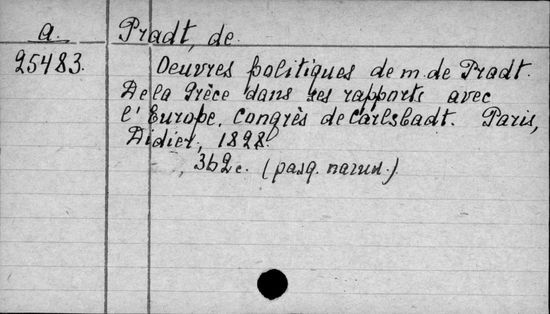 a. Pradt, de.
25483. Oeuvres politiques de m. de Pradt.
De la Grèce dans ses rapports avec
l'Europe. Congrès de Carlsbadt. Paris,
Didier, 1828.
362 c. (разд. пагин.)